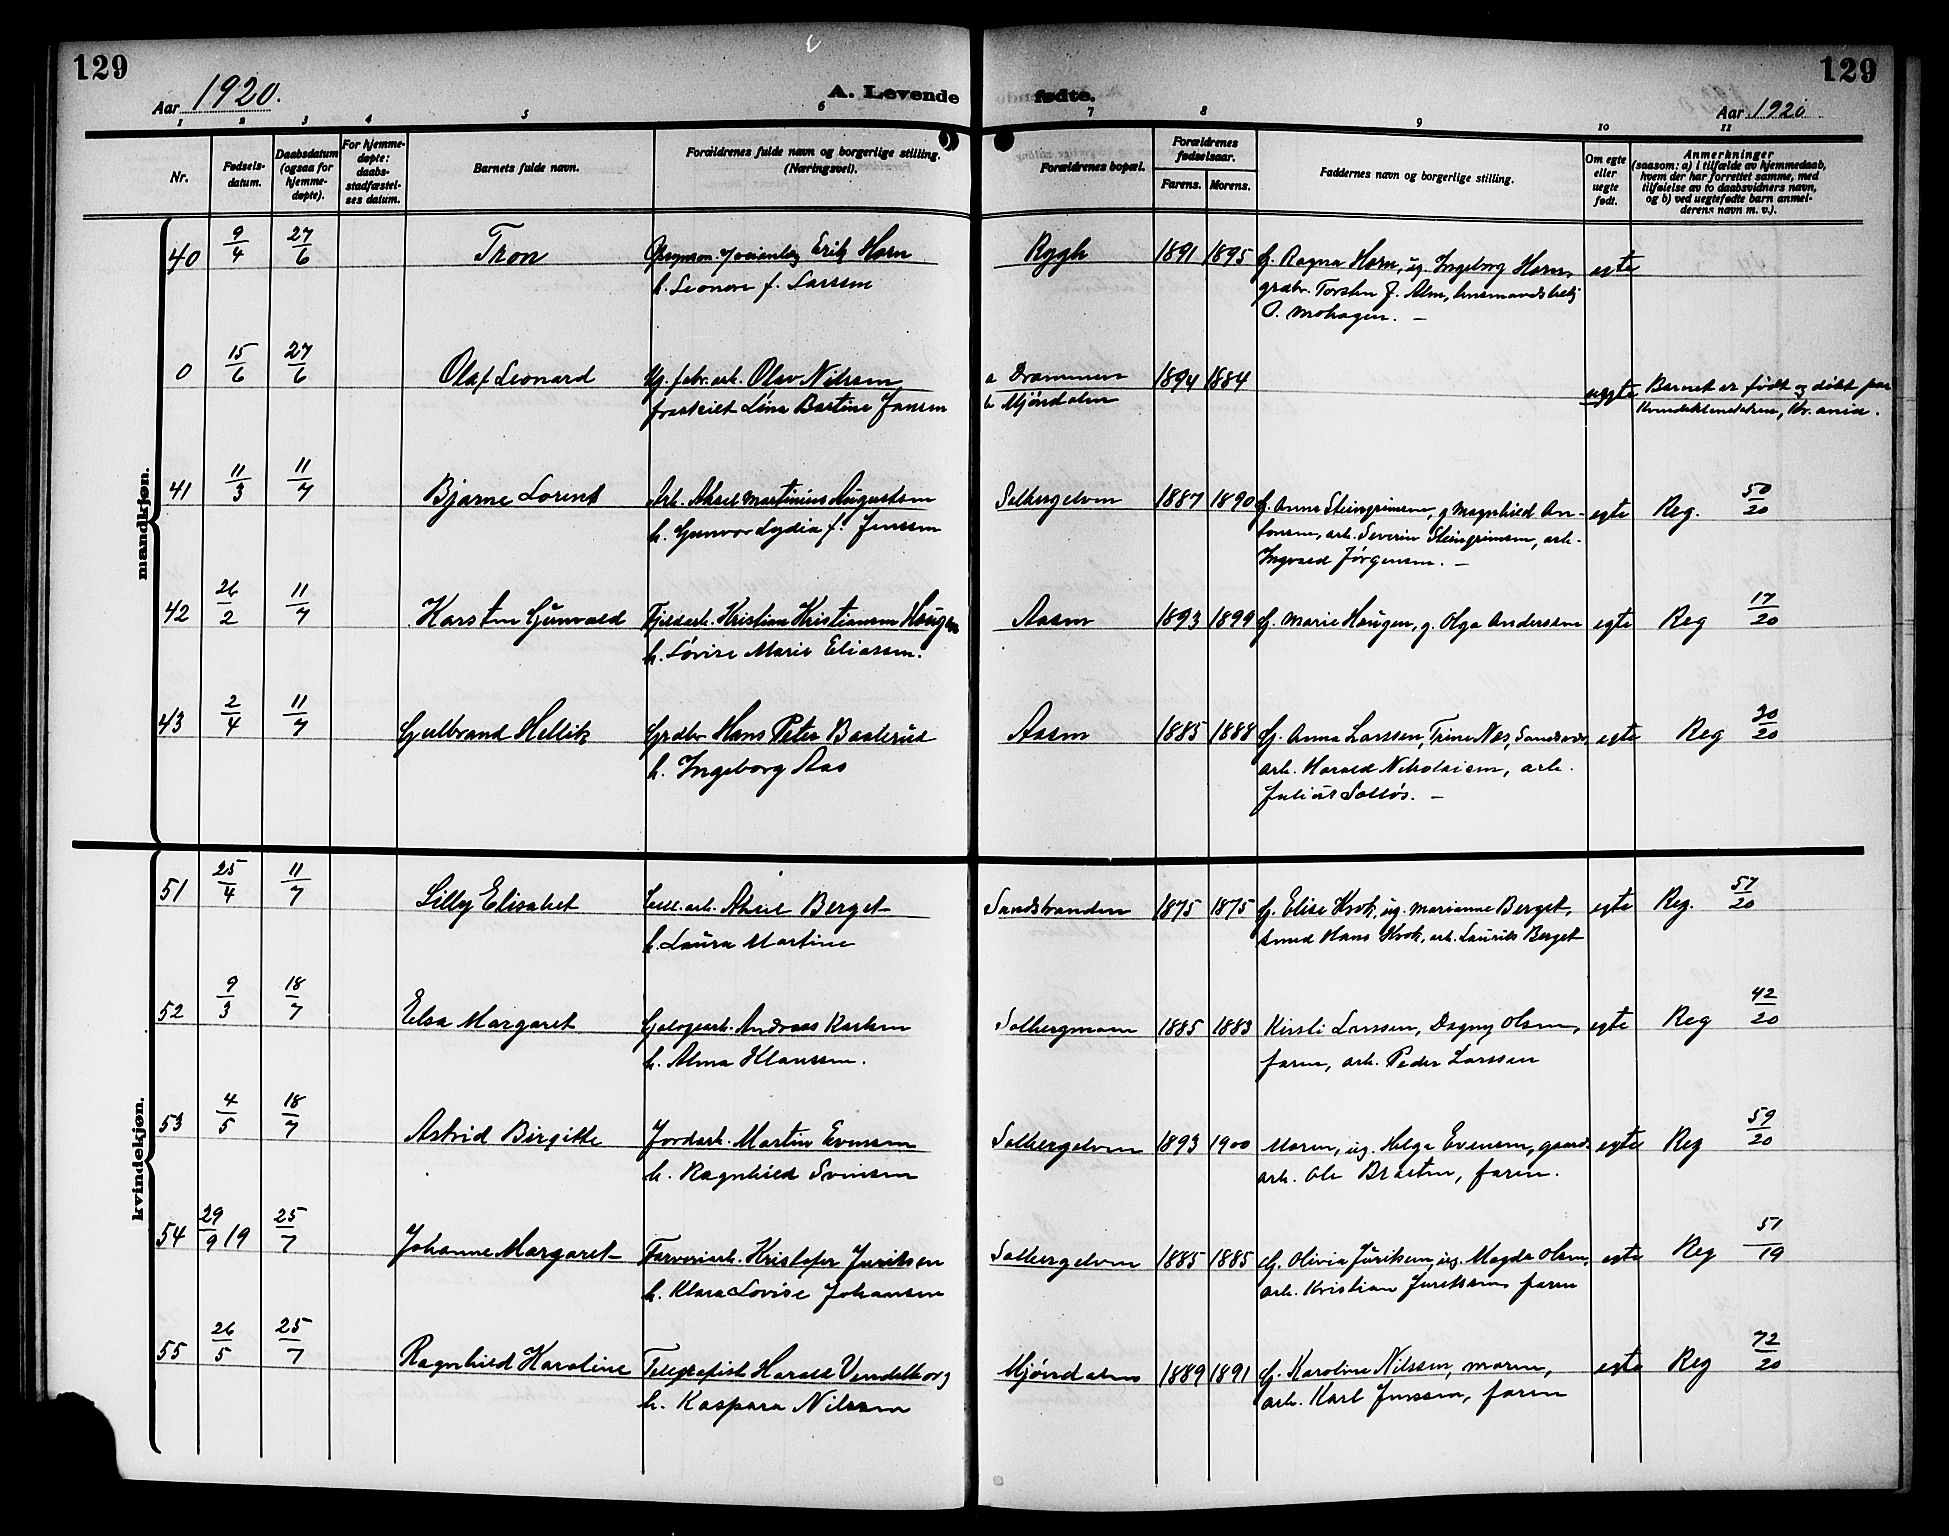 129
129
Aar 1920.
A. Levende fødte.
Aar 1920
1 2 3 4 5 6 7 8 9 10 11
Nr.
Fødsels-
datum.
Daabsdatum
(ogsaa for
hjemme-
døpte).
For hjemme-
døpte:
daabs-
stadfæstel-
ses datum.
Barnets fulde navn.
Forældrenes fulde navn og borgerlige stilling.
(Næringsvei).
Forældrenes bopæl.
Forældrenes
fødselsaar.
Farens. Morens.
Faddernes navn og borgerlige stilling.
Om egte
eller
uegte
født.
Anmerkninger
(saasom: a) i tilfælde av hjemmedaab,
hvem der har forrettet samme, med
tilføielse av to daabsvidners navn,
og b) ved uegtefødte barn anmel-
derens navn m. v.).
mandkjøn.
40 9/4 27/6 Tron Erik Horn Rygh 1891 1895 f. Ragna Horn, ug. Ingeborg Horn, egte
h. Leonore f. Larssen
grdbr. Torsten J. Alm, lensmandsbetj
O. Mohagen. –
0 15/6 27/6 Olaf Leonard Ug. fabr. arb. Olav Nilssen a Drammen 1894 1884 uegte Barnet er født og døbt paa
fraskilt Lina Bastine Jansen b Mjøndalen Kvindeklinikken, Kr.ania.
41 11/3 11/7 Bjarne Lorents Arb. Aksel Martinius Augustsen Solbergelven 1887 1890 f. Anna Steingrimsen, g Magnhild An- egte Reg. 50/20
h. Gunvor Lydia f. Jenssen
tonsen, arb. Severin Steingrimsen, arb.
Ingvald Jørgensen. –
42 26/2 11/7 Karsten Gunvald Fjeldarb. Kristian Kristiansen Haugen Aasen 1893 1899 f. Marie Haugen, g. Olga Anderssen egte Reg 17/20
h. Lovise Marie Eliassen.
43 2/4 11/7 Gulbrand Hellik Grdbr Hans Peter Basterud Aasen 1885 1888 f. Anna Larssen, Trine Næs, Sandsvær, egte Reg 30/20
h. Ingeborg Aas
arb. Harald Nikolaisen, arb.
Julius Solløs. –
kvindekjøn.
51 25/4 11/7 Lilly Elisabet Cell. arb. Aksel Berget Sandstranden 1875 1875 f. Elise Krok, ug. Marianne Berget, egte Reg. 57/20
h. Laura Martine
smed Hans Krok, arb. Laurits Berget
52 9/3 18/7 Elsa Margaret Andreas Karlsen Solbergmoen 1885 1883 Kirsti Larssen, Dagny Olsen, egte Reg 42/20
h. Alma Klaussen.
faren, arb. Peder Larssen
53 4/5 18/7 Astrid Birgitte Jordarb. Martin Evensen Solbergelven 1893 1900 Moren, ug. Helga Evensen, gaards- egte Reg 59/20
h. Ragnhild Svensen
arb. Ole Bråten, faren.
54 29/9 19 25/7 Johanne Margaret Farveriarb. Kristofer Juriksen Solbergelven 1885 1885 f. Olivia Juriksen, ug. Magda Olsen, egte Reg 51/19
h. Klara Lovise Johansen
arb. Kristian Juriksen, faren
55 26/5 25/7 Ragnhild Karoline Telegrafist Harald Vendelborg Mjøndalen 1889 1891 f. Karoline Nilssen, moren, egte Reg 72/20
h. Kaspara Nilssen
arb. Karl Jenssen, faren